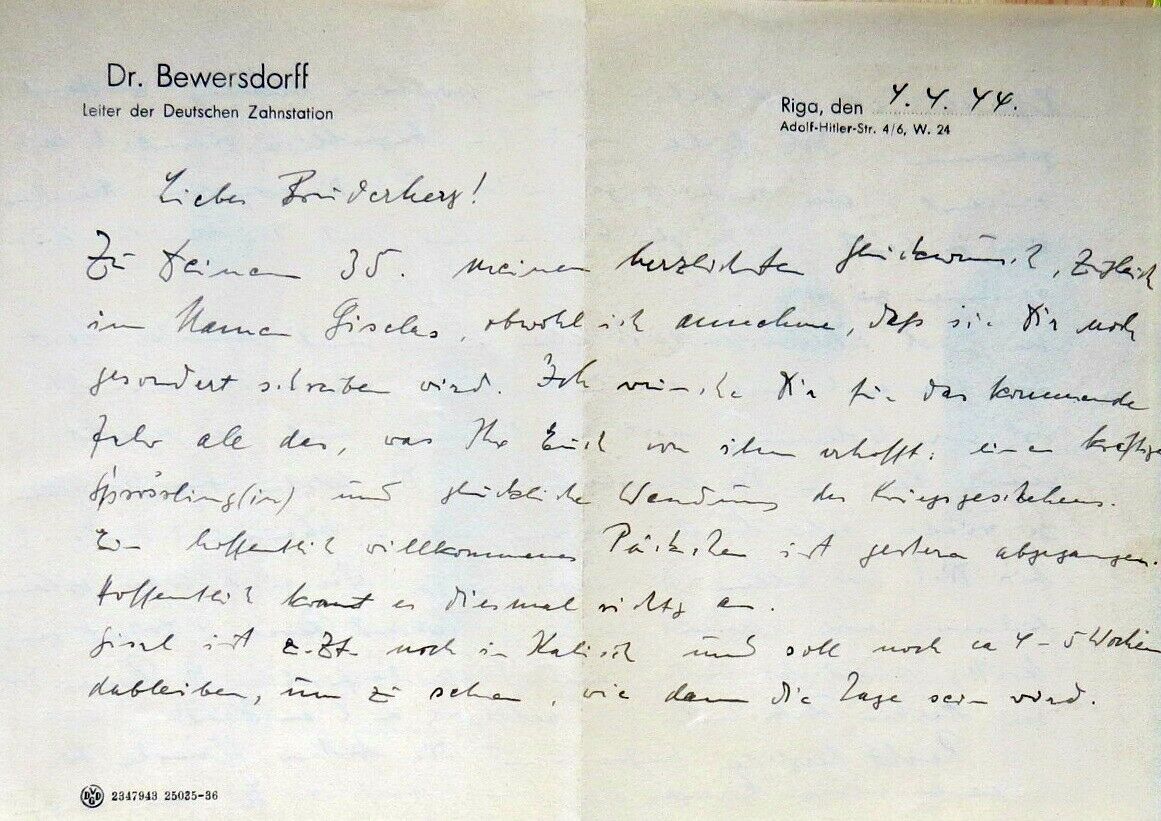 Dr. Bewersdorff
Leiter der Deutschen Zahnstation
Riga, den 4.4.44.
Adolf-Hitler-Str. 4/6, W. 24
Liebes Bruderherz!
Zu Deinem 35. meinen herzlichsten Glückwunsch, zugleich
im Namen Giselas, obwohl ich annehme, daß sie Dir noch
gesondert schreiben wird. Ich wünsche Dir für das kommende
Jahr alle das, was Ihr Euch von ihm erhofft: einen kräftigen
Sprössling(in) und glückliche Wendung des Kriegsgeschehens.
Ein hoffentlich willkommenes Päckchen ist gestern abgegangen.
Hoffentlich kommt es diesmal richtig an.
Gisel ist z.Zt. noch in Kalisch und soll noch ca 4-5 Wochen
dableiben, um zu sehen, wie dann die Lage sein wird.
DVGD 2347943 25035-36